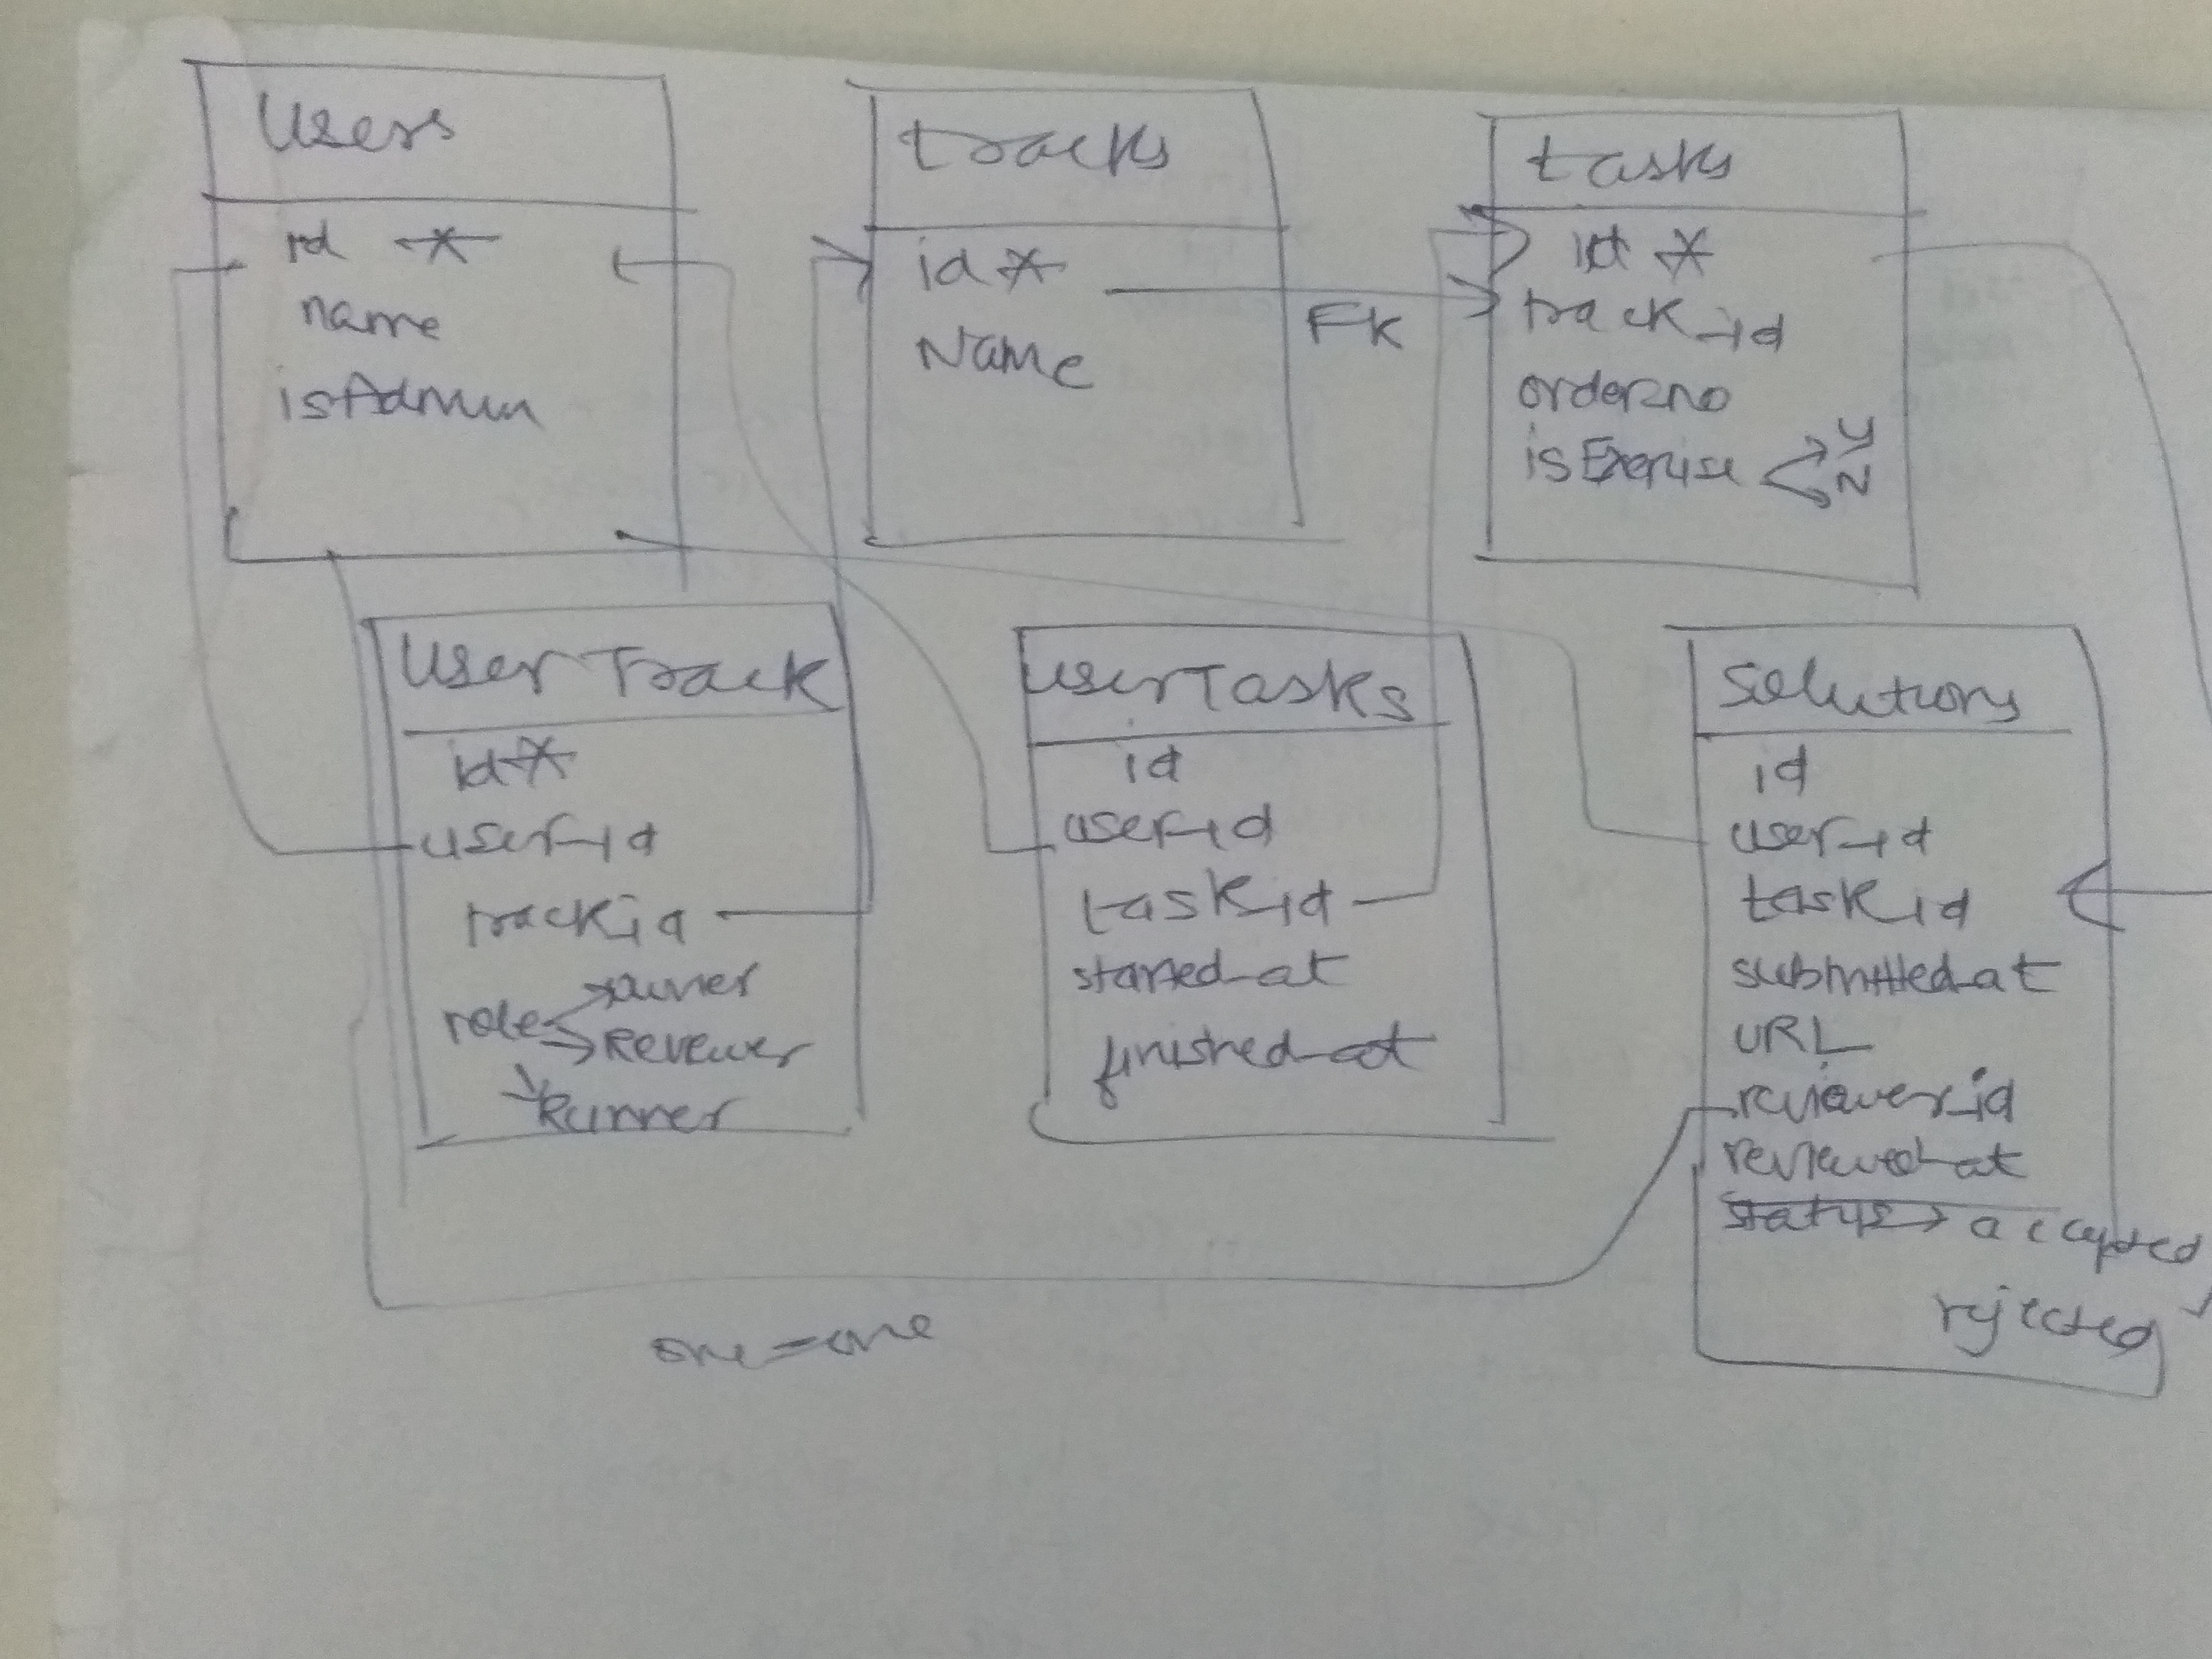 Users
id *
name
isAdmin
tracks
id *
Name
FK
tasks
id *
track_id
order_no
isExercise
Y
N
UserTrack
id *
user_id
track_id
role
Reviewer
Runner
userTasks
id
user_id
task_id
started_at
finished_at
solutions
id
user_id
task_id
submitted_at
URL
reviewer_id
reviewed_at
status → accepted
rejected
one - one